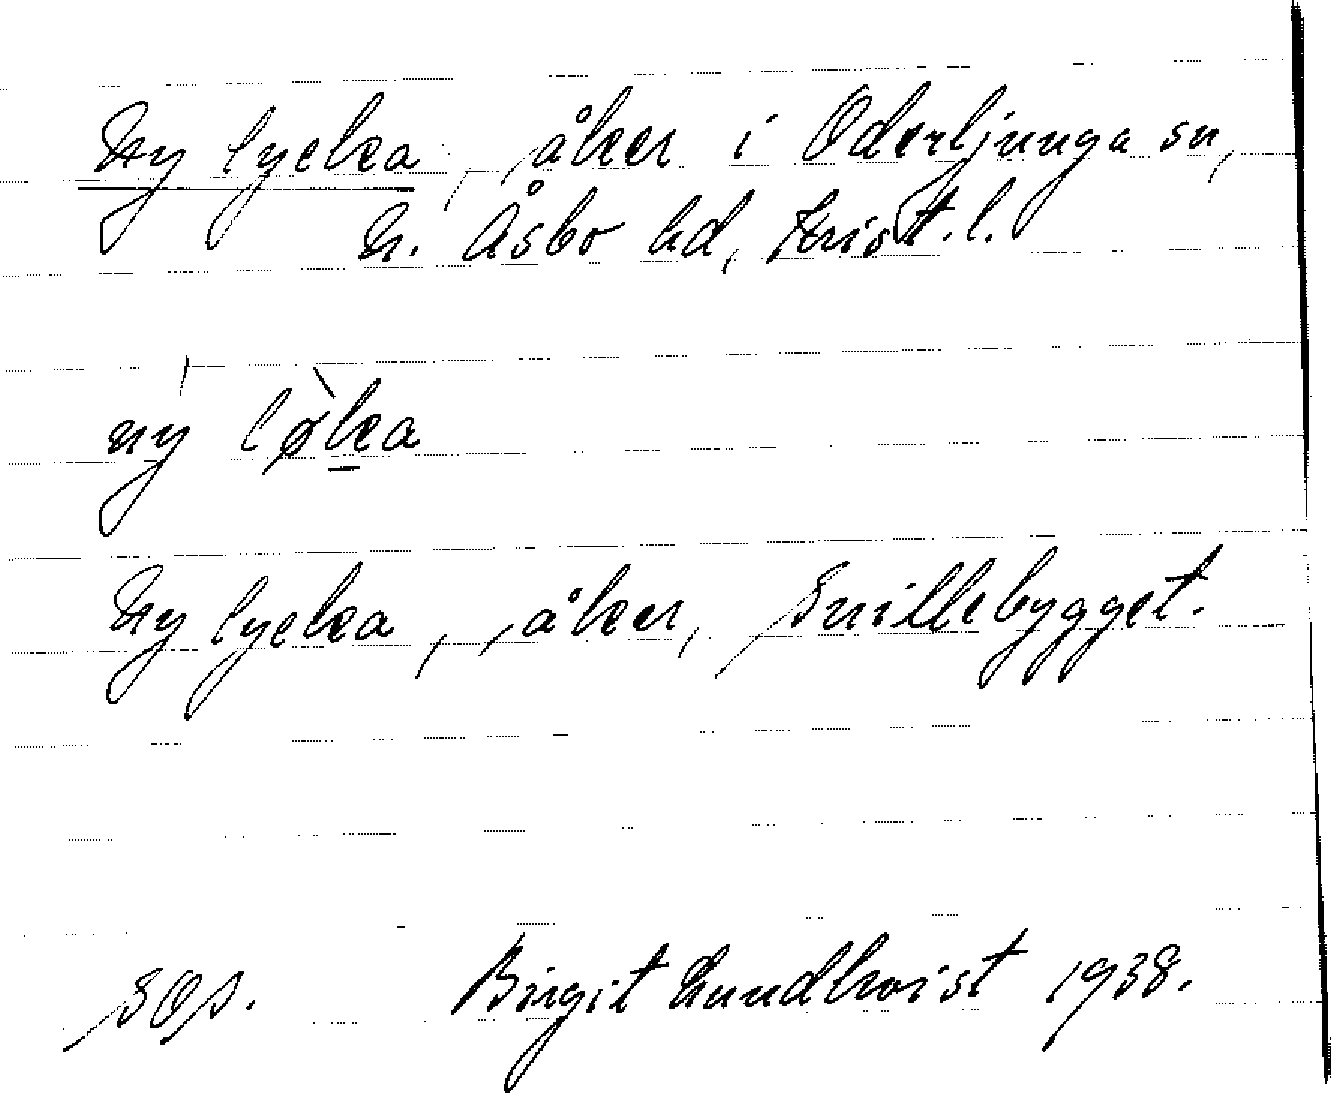 Ny lycka, åker i Oderljunga sn,
N. Åsbo hd, Krist. l.
ný lø̀ḵa
Ny lycka, åker, Snillebygget.
SOs. Birgit Lundkvist 1938.